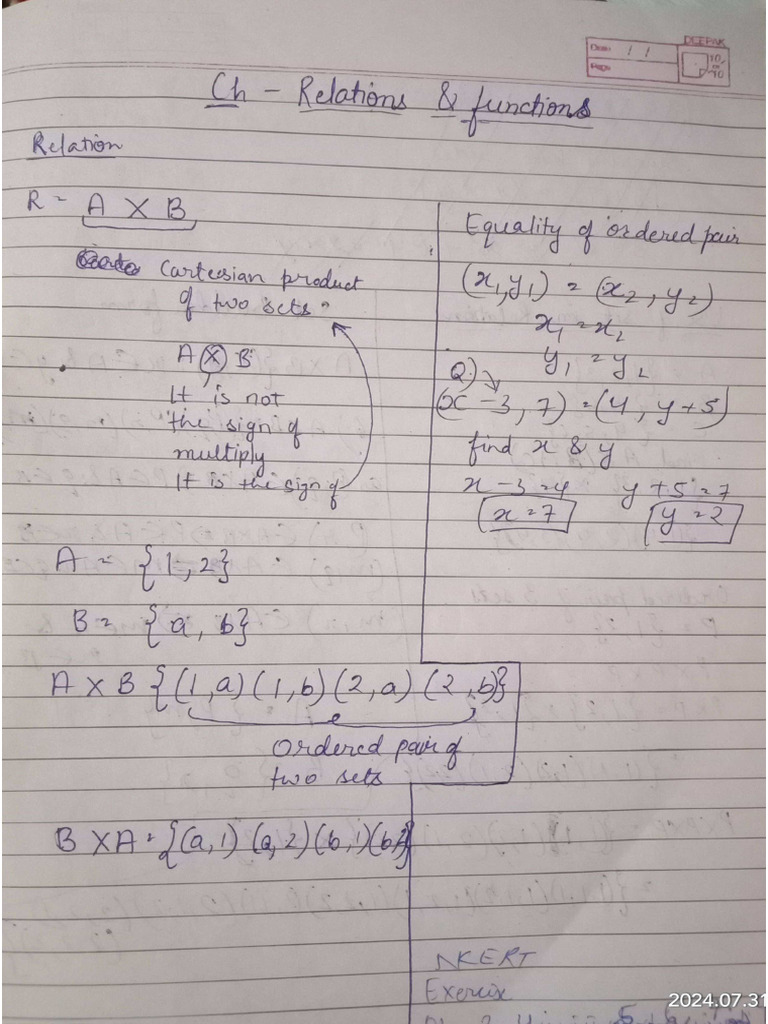 DEEPAK
Date / /
Page
Ch - Relations & functions
Relation
R = A X B
Cartesian product
of two sets.
A X B
It is not
the sign of
multiply
It is the sign of
A = {1, 2}
B = {a, b}
A X B {(1, a) (1, b) (2, a) (2, b)}
Ordered pair of
two sets
B X A = {(a, 1) (a, 2) (b, 1) (b, 2)}
Equality of ordered pair
(x₁, y₁) = (x₂, y₂)
x₁ = x₂
y₁ = y₂
Q)
(x - 3, 7) = (4, y + 5)
find x & y
x - 3 = 4 y + 5 = 7
x = 7 y = 2
NKERT
Exercix
2024.07.31